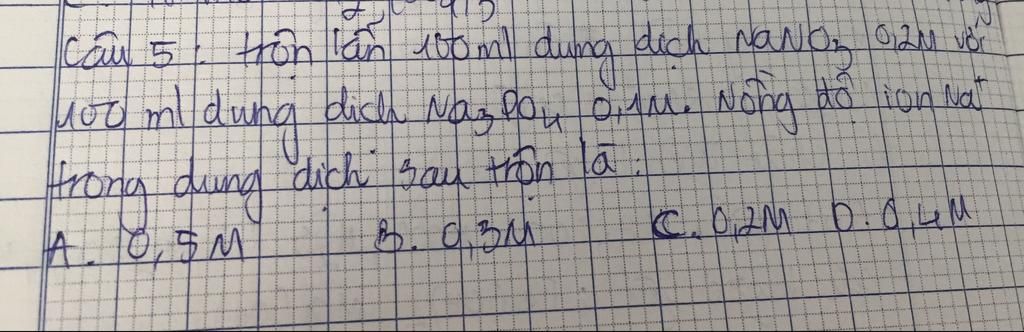 Câu 5: trộn lẫn 100ml dung dịch NaNO3 0,2M với
100 ml dung dịch Na3PO4 0,1M. Nồng độ ion Na+
trong dung dịch sau trộn là:
A. 0,5M B. 0,3M C. 0,2M D. 0,4M